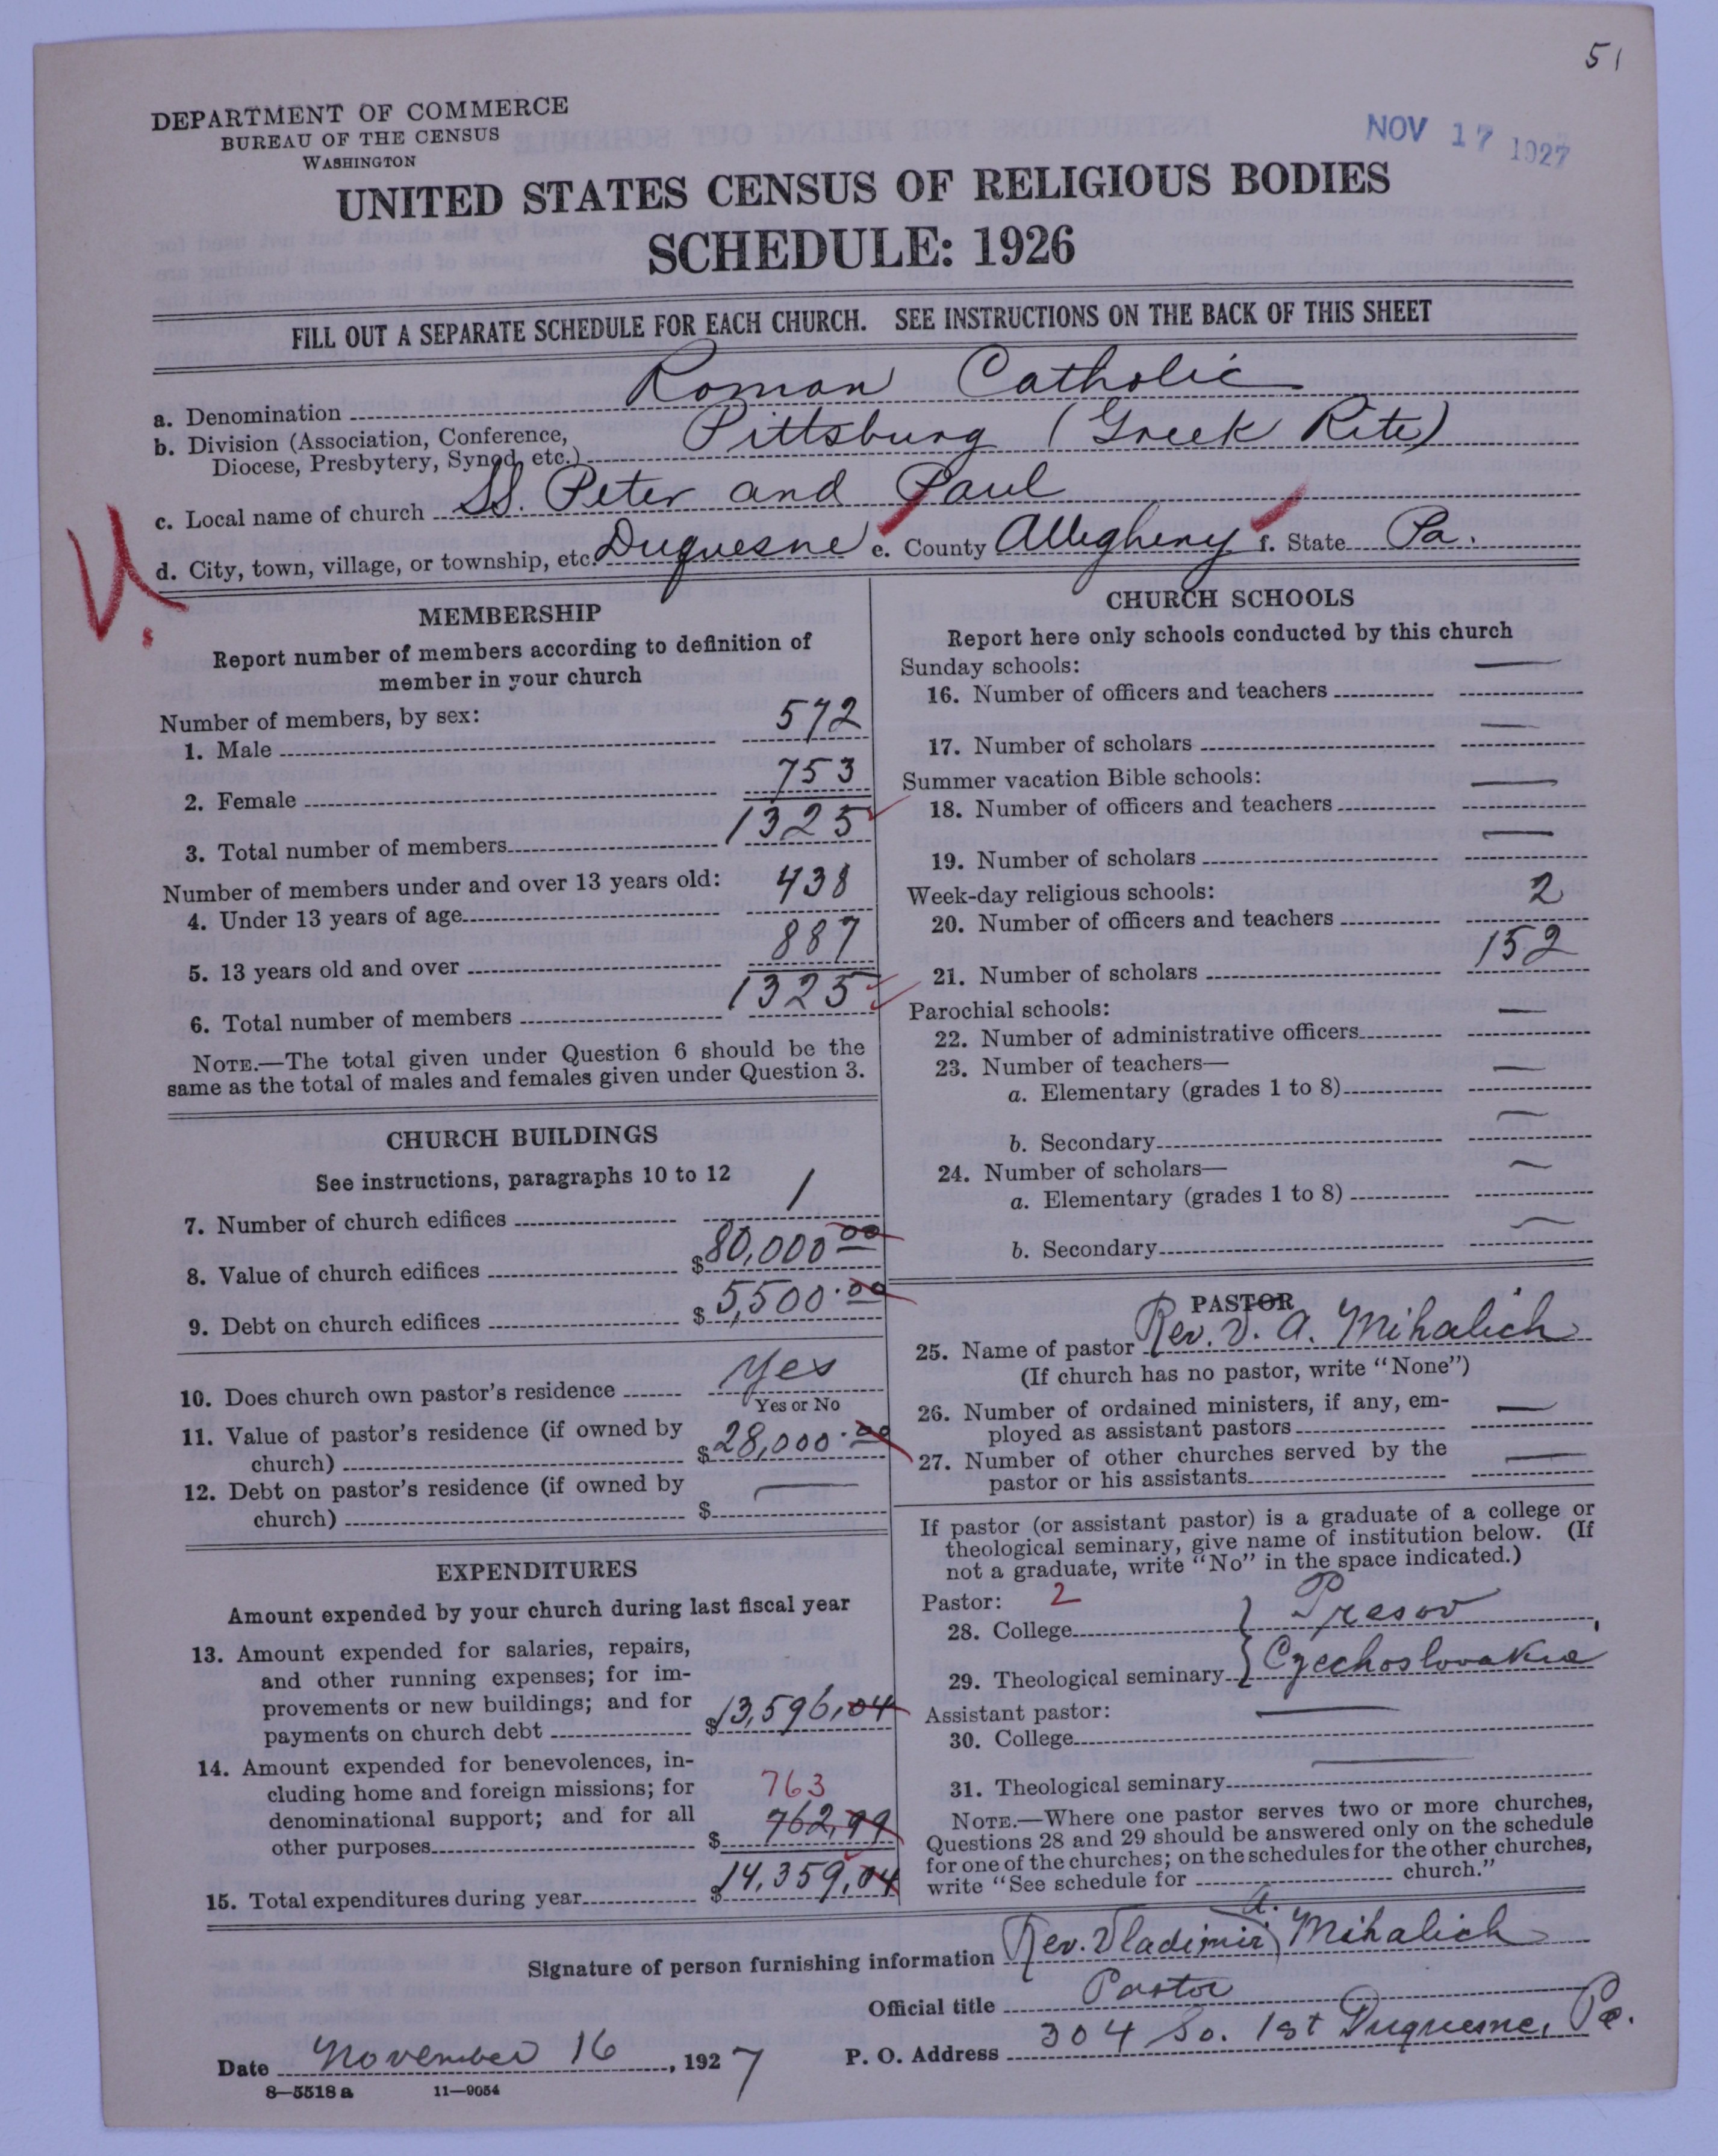 51
DEPARTMENT OF COMMERCE
BUREAU OF THE CENSUS
WASHINGTON
NOV 17 1927
UNITED STATES CENSUS OF RELIGIOUS BODIES
SCHEDULE: 1926
FILL OUT A SEPARATE SCHEDULE FOR EACH CHURCH. SEE INSTRUCTIONS ON THE BACK OF THIS SHEET
a. Denomination Roman Catholic
b. Division (Association, Conference,
Diocese, Presbytery, Synod, etc.) Pittsburg (Greek Rite)
c. Local name of church SS. Peter and Paul
d. City, town, village, or township, etc. Duquesne e. County Allegheny f. State Pa.
MEMBERSHIP
Report number of members according to definition of
member in your church
Number of members, by sex:
1. Male 572
2. Female 753
3. Total number of members 1325
Number of members under and over 13 years old:
4. Under 13 years of age 438
5. 13 years old and over 887
6. Total number of members 1325
NOTE.—The total given under Question 6 should be the
same as the total of males and females given under Question 3.
CHURCH BUILDINGS
See instructions, paragraphs 10 to 12
7. Number of church edifices 1
8. Value of church edifices $80,000 00
9. Debt on church edifices $5,500.00
10. Does church own pastor's residence Yes
Yes or No
11. Value of pastor's residence (if owned by
church) $28,000.00
12. Debt on pastor's residence (if owned by
church) $ —
EXPENDITURES
Amount expended by your church during last fiscal year
13. Amount expended for salaries, repairs,
and other running expenses; for im-
provements or new buildings; and for
payments on church debt $13,596.04
14. Amount expended for benevolences, in-
cluding home and foreign missions; for 763
denominational support; and for all
other purposes $762.99
15. Total expenditures during year $14,359.04
CHURCH SCHOOLS
Report here only schools conducted by this church
Sunday schools:
16. Number of officers and teachers —
17. Number of scholars —
Summer vacation Bible schools:
18. Number of officers and teachers —
19. Number of scholars —
Week-day religious schools:
20. Number of officers and teachers 2
21. Number of scholars 152
Parochial schools:
22. Number of administrative officers —
23. Number of teachers—
a. Elementary (grades 1 to 8) —
b. Secondary —
24. Number of scholars—
a. Elementary (grades 1 to 8) —
b. Secondary —
PASTOR
25. Name of pastor Rev. V. A. Mihalich
(If church has no pastor, write "None")
26. Number of ordained ministers, if any, em-
ployed as assistant pastors —
27. Number of other churches served by the
pastor or his assistants —
If pastor (or assistant pastor) is a graduate of a college or
theological seminary, give name of institution below. (If
not a graduate, write "No" in the space indicated.)
Pastor: 2
28. College Presov
29. Theological seminary Czechoslovakia
Assistant pastor:
30. College —
31. Theological seminary —
NOTE.—Where one pastor serves two or more churches,
Questions 28 and 29 should be answered only on the schedule
for one of the churches; on the schedules for the other churches,
write "See schedule for church."
Signature of person furnishing information Rev. Vladimir A. Mihalich
Official title Pastor
Date November 16, 1927 P. O. Address 304 So. 1st Duquesne, Pa.
8—5518a 11—9054